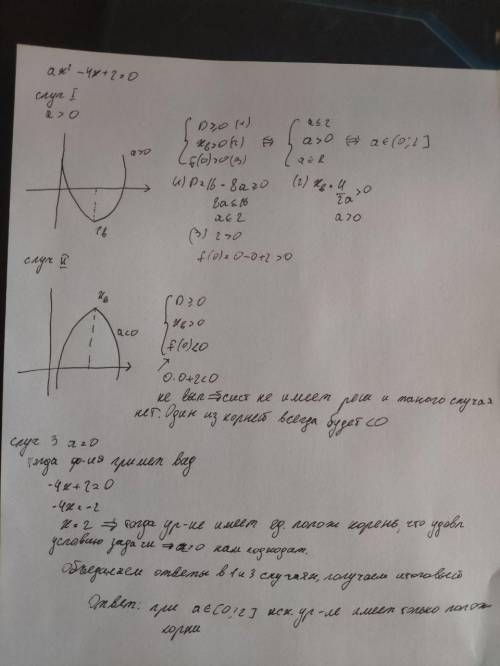 ax² - 4x + 2 = 0
случ I
a > 0
a>0
xв
D ≥ 0 (1)
xв > 0 (2)
f(0) > 0 (3)
⇔
a ≤ 2
a > 0
a ∈ R
⇔ a ∈ (0; 2]
(1) D = 16 - 8a ≥ 0
8a ≤ 16
a ≤ 2
(2) xв = 4/2a > 0
a > 0
(3) 2 > 0
f(0) = 0 - 0 + 2 > 0
случ II
xв
a<0
D ≥ 0
xв > 0
f(0) < 0
0·0+2<0
не вып ⇒ сист не имеет реш и такого случая
нет. Один из корней всегда будет < 0
случ 3 a = 0
Тогда ф-ия примет вид
-4x + 2 = 0
-4x = -2
x = 2 ⇒ тогда ур-ие имеет ед. полож корень, что удовл
условию задачи ⇒ a=0 нам подходит.
Объединяем ответы в 1 и 3 случаях, получаем итоговый
Ответ: при a ∈ [0; 2] исх ур-ие имеет только полож
корни